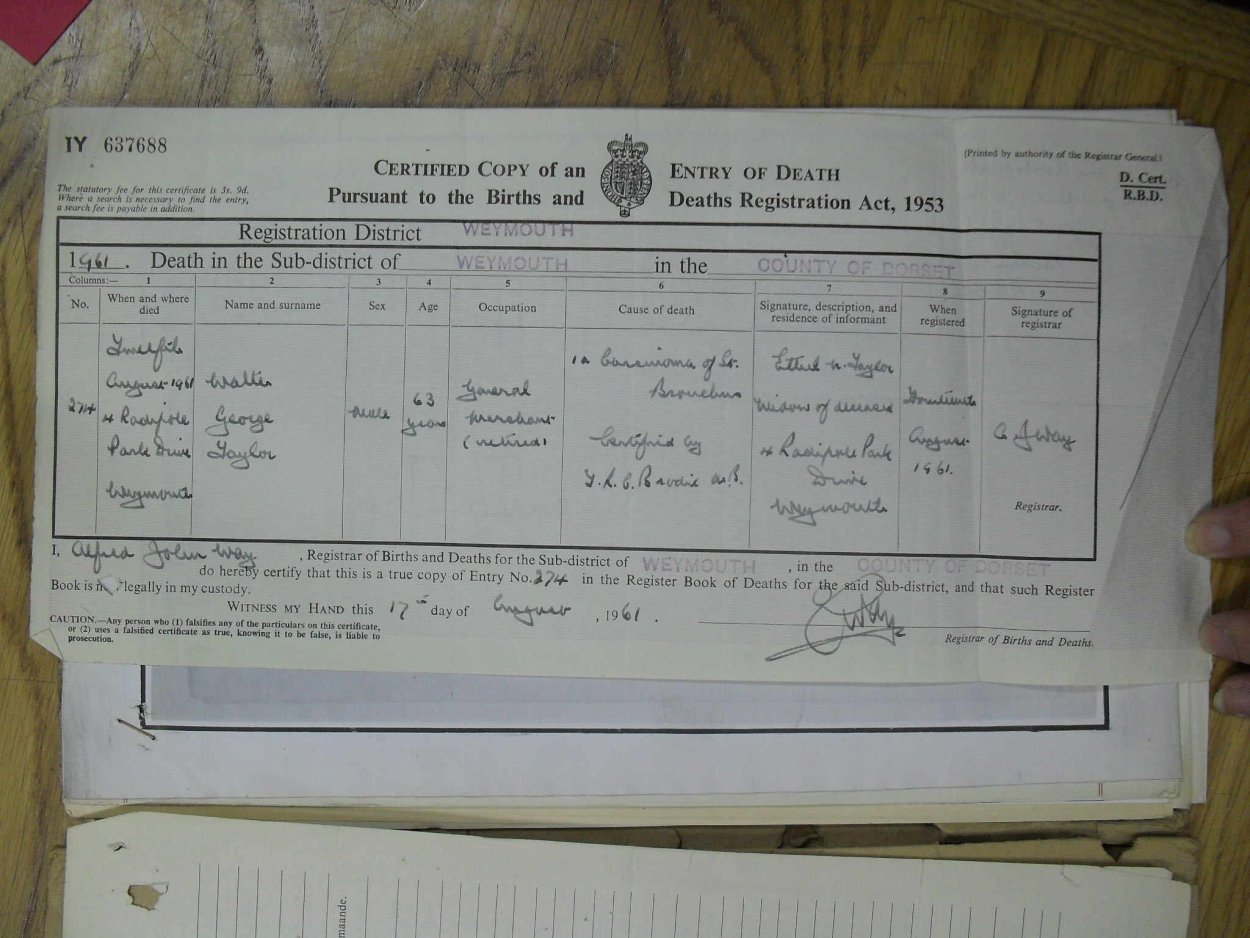 IY 637688
(Printed by authority of the Registrar General.)
CERTIFIED COPY of an ENTRY OF DEATH
D. Cert.
R.B.D.
The statutory fee for this certificate is 3s. 9d.
Where a search is necessary to find the entry,
a search fee is payable in addition.
Pursuant to the Births and Deaths Registration Act, 1953
Registration District WEYMOUTH
1961. Death in the Sub-district of WEYMOUTH in the COUNTY OF DORSET
Columns:— 1 2 3 4 5 6 7 8 9
No. When and where died Name and surname Sex Age Occupation Cause of death Signature, description, and residence of informant When registered Signature of registrar
274
Twelfth
August 1961
4 Radipole
Park Drive
Weymouth
Walter
George
Taylor
Male
63
years
General
Merchant
(retired)
1a Carcinoma of
Bronchus
Certified by
Brodie M.B.
Ethel M. Taylor
Widow of deceased
4 Radipole Park
Drive
Weymouth
August
1961.
A J Way
Registrar.
I, Alfred John Way, Registrar of Births and Deaths for the Sub-district of WEYMOUTH, in the COUNTY OF DORSET
do hereby certify that this is a true copy of Entry No. 274 in the Register Book of Deaths for the said Sub-district, and that such Register
Book is legally in my custody.
WITNESS MY HAND this 17th day of August, 1961.
CAUTION.—Any person who (1) falsifies any of the particulars on this certificate,
or (2) uses a falsified certificate as true, knowing it to be false, is liable to
prosecution.
Registrar of Births and Deaths.
maande.